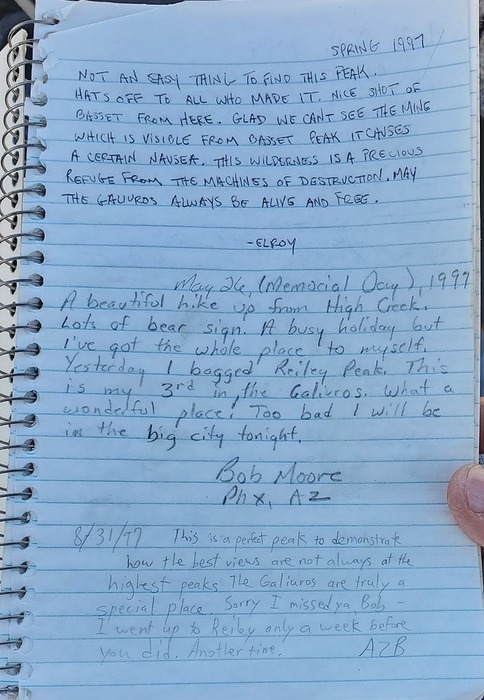 SPRING 1997
NOT AN EASY THING TO FIND THIS PEAK.
HATS OFF TO ALL WHO MADE IT. NICE SHOT OF
BASSET FROM HERE. GLAD WE CANT SEE THE MINE
WHICH IS VISIBLE FROM BASSET PEAK IT CAUSES
A CERTAIN NAUSEA. THIS WILDERNESS IS A PRECIOUS
REFUGE FROM THE MACHINES OF DESTRUCTION. MAY
THE GALIUROS ALWAYS BE ALIVE AND FREE.
-ELROY
May 26, (Memorial Day), 1997
A beautiful hike up from High Creek.
Lots of bear sign. A busy holiday but
I've got the whole place to myself.
Yesterday I bagged Reiley Peak. This
is my 3rd in the Galiuros. What a
wonderful place! Too bad I will be
in the big city tonight.
Bob Moore
Phx, AZ
8/31/97 This is a perfect peak to demonstrate
how the best views are not always at the
highest peaks. The Galiuros are truly a
special place. Sorry I missed ya Bob -
I went up to Reiley only a week before
you did. Another time. AZB